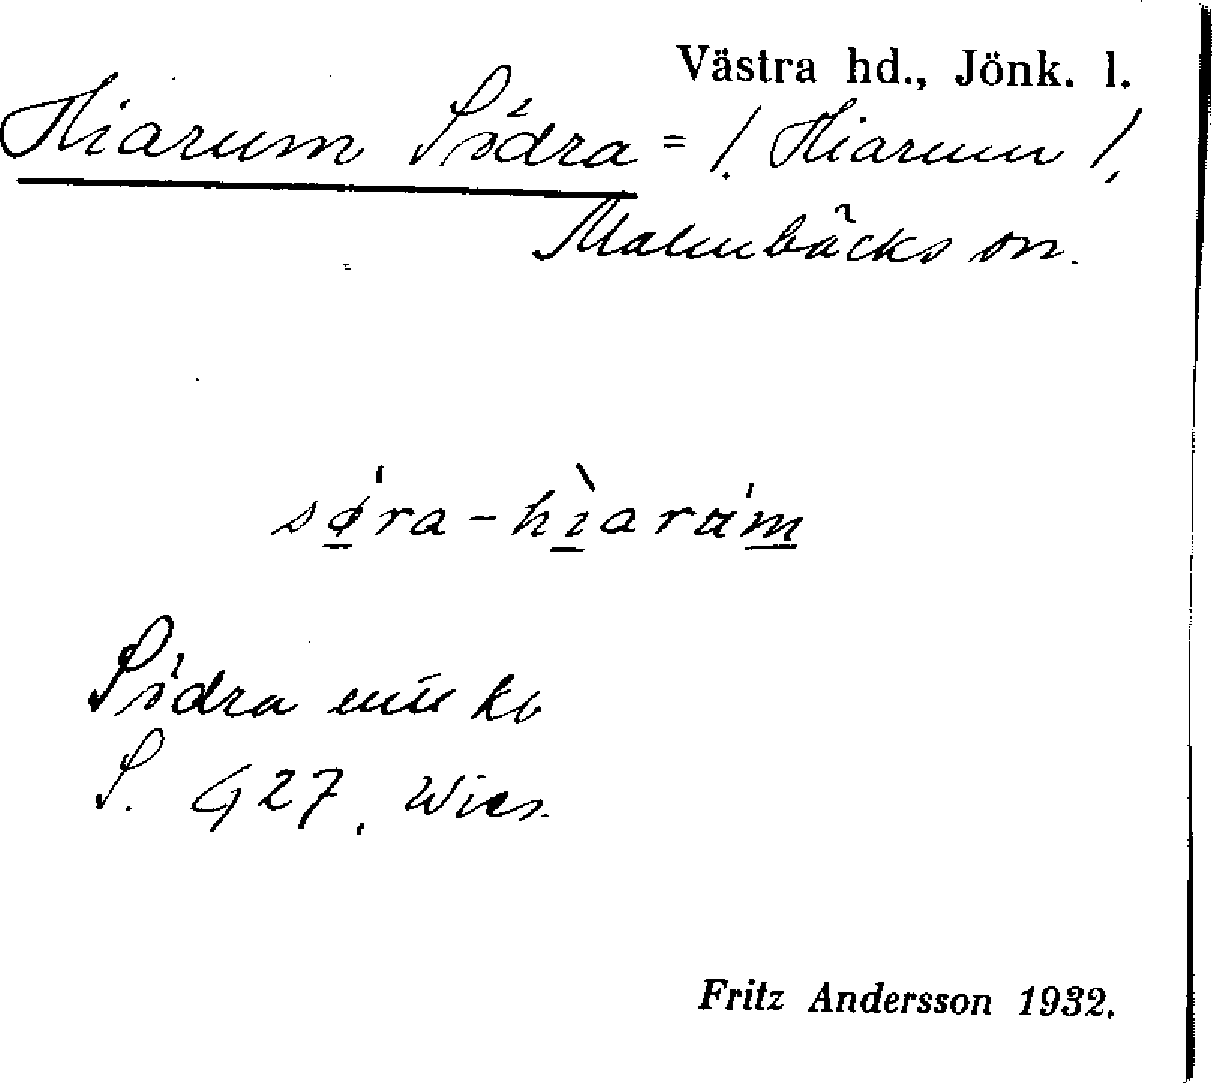 Västra hd., Jönk. l.
Hiarum Södra = /. Hiarum /,
Malmbäcks sn.
sǿ̱ra-hı̱̀arám̱
Södra
S. G 27.
Fritz Andersson 1932.